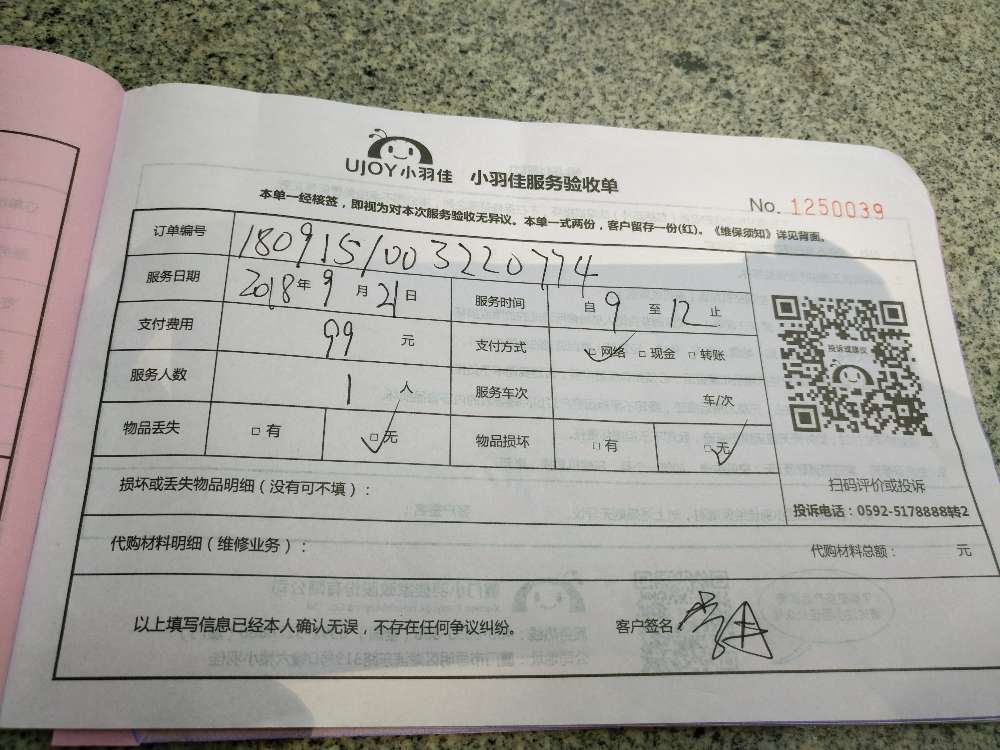 UJOY小羽佳 小羽佳服务验收单
本单一经核签，即视为对本次服务验收无异议。本单一式两份，客户留存一份(红)。《维保须知》详见背面。
No. 1250039
订单编号 180915/003220774
服务日期 2018年9月21日 服务时间 自9至12止
支付费用 99元 支付方式 ☑网络 □现金 □转账
服务人数 1人 服务车次 车/次
物品丢失 □有 ☑无 物品损坏 □有 ☑无
投诉或建议
扫码评价或投诉
投诉电话：0592-5178888转2
损坏或丢失物品明细（没有可不填）：
代购材料明细（维修业务）： 代购材料总额： 元
以上填写信息已经本人确认无误，不存在任何争议纠纷。 客户签名：